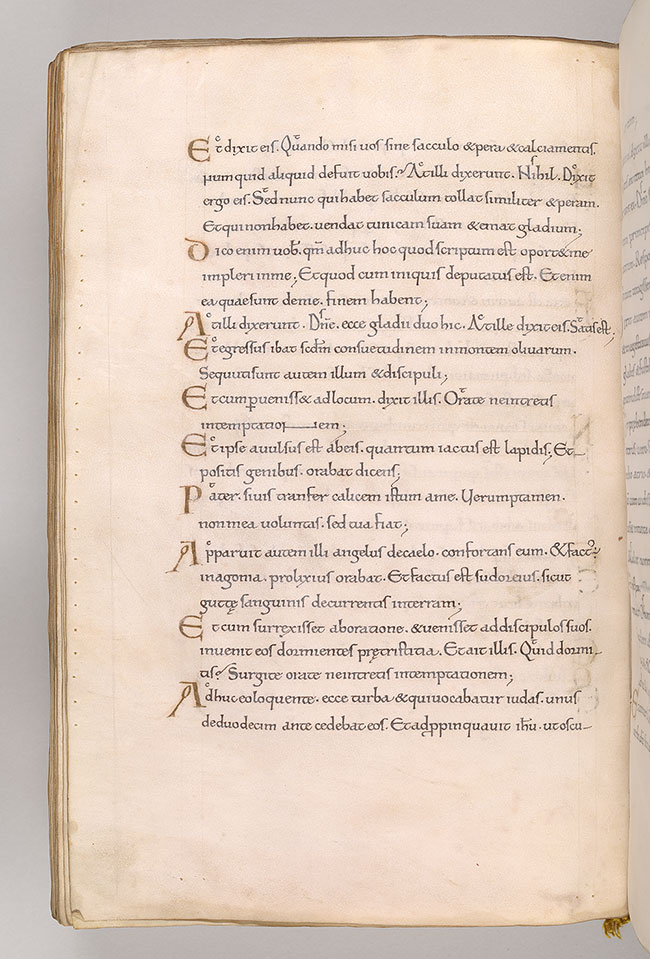 Et dixit eis. Quando misi uos sine sacculo & pera & calciamentis.
numquid aliquid defuit uobis? At illi dixerunt. Nihil. Dixit
ergo eis. Sed nunc qui habet sacculum tollat similiter & peram.
Et qui non habet. uendat tunicam suam & emat gladium;
Dico enim uob̅. qm̅ adhuc hoc quod scriptum est oport& me
impleri in me; Et quod cum iniquis deputatus est. Et enim
ea quae sunt de me. finem habent;
At illi dixerunt. Dn̅e. ecce gladii duo hic. At ille dixit eis. Satis est;
Et egressus ibat scd̅m consuetudinem in montem oliuarum.
Sequuti sunt autem illum & discipuli;
Et cum perueniss& ad locum. dixit illis. Orate ne intretis
in temptationem;
Et ipse auulsus est ab eis. quantum iactus est lapidis; Et
positis genibus. orabat dicens;
Pater. si uis transfer calicem istum a me. Uerumptamen.
non mea voluntas. sed tua fiat;
Apparuit autem illi angelus de caelo. confortans eum. & fact'
in agonia. prolixius orabat. Et factus est sudor eius. sicut
guttę sanguinis decurrentis in terram;
Et cum surrexisset ab oratione. & uenisset ad discipulos suos.
inuenit eos dormientes prę tristitia. Et ait illis. Quid dormi-
tis? Surgite orate ne intretis in temptationem;
Adhuc eo loquente. ecce turba & qui uocabatur iudas. unus
de duodecim antecedebat eos. Et adppinquauit ih̅u. ut oscu-